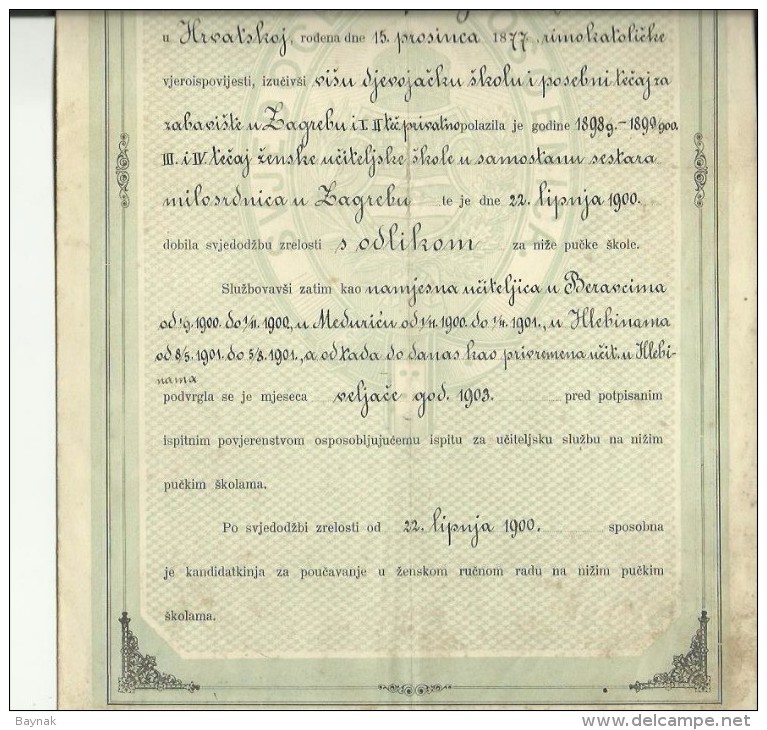 u Hrvatskoj, rođena dne 15. prosinca 1877., rimokatoličke
vjeroispovijesti, izučivši višu djevojačku školu i posebni tečaj za
zabavište u Zagrebu i I. II teč. privatno polazila je godine 1898/9. – 1899/900.
III. i IV. tečaj ženske učiteljske škole u samostanu sestara
milosrdnica u Zagrebu te je dne 22. lipnja 1900.
dobila svjedodžbu zrelosti s odlikom za niže pučke škole.
Službovavši zatim kao namjesna učiteljica u Beravcima
od 1/9. 1900. do 1/11. 1900, u Međuriću od 1/11. 1900. do 1/4. 1901., u Hlebinama
od 8/5. 1901. do 5/8. 1901., a od tada do danas kao privremena učit. u Hlebi-
nama
podvrgla se je mjeseca veljače god. 1903. pred potpisanim
ispitnim povjerenstvom osposobljujućemu ispitu za učiteljsku službu na nižim
pučkim školama.
Po svjedodžbi zrelosti od 22. lipnja 1900. sposobna
je kandidatkinja za poučavanje u ženskom ručnom radu na nižim pučkim
školama.
Baynak
delcampe.net